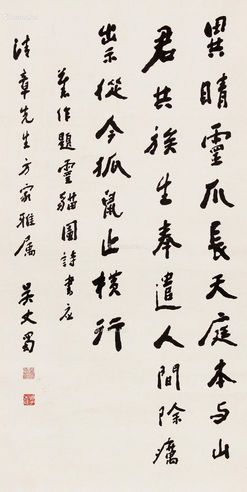 異睛靈爪長天庭本與山
君共族生奉遣人間除癘
出示從今狐鼠止橫行
舊作題靈貓圖詩書應
清章先生方家雅屬 吳丈蜀